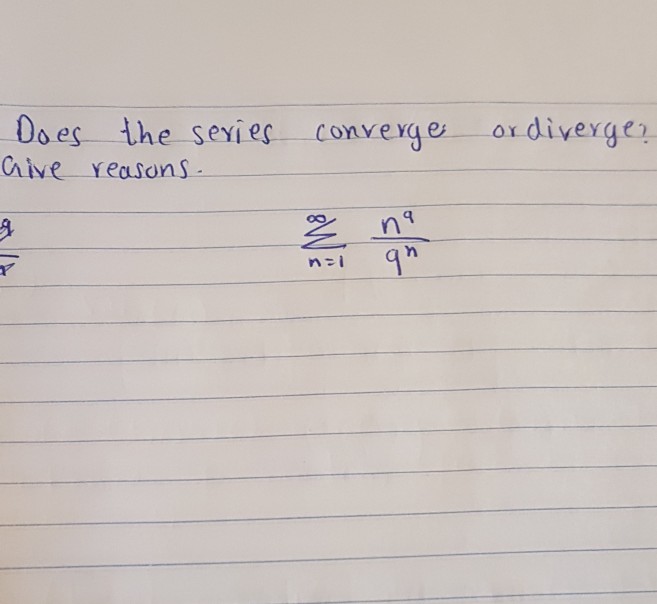 Does the series converge or diverge?
Give reasons.
∞ n⁹
Σ
n=1 9ⁿ